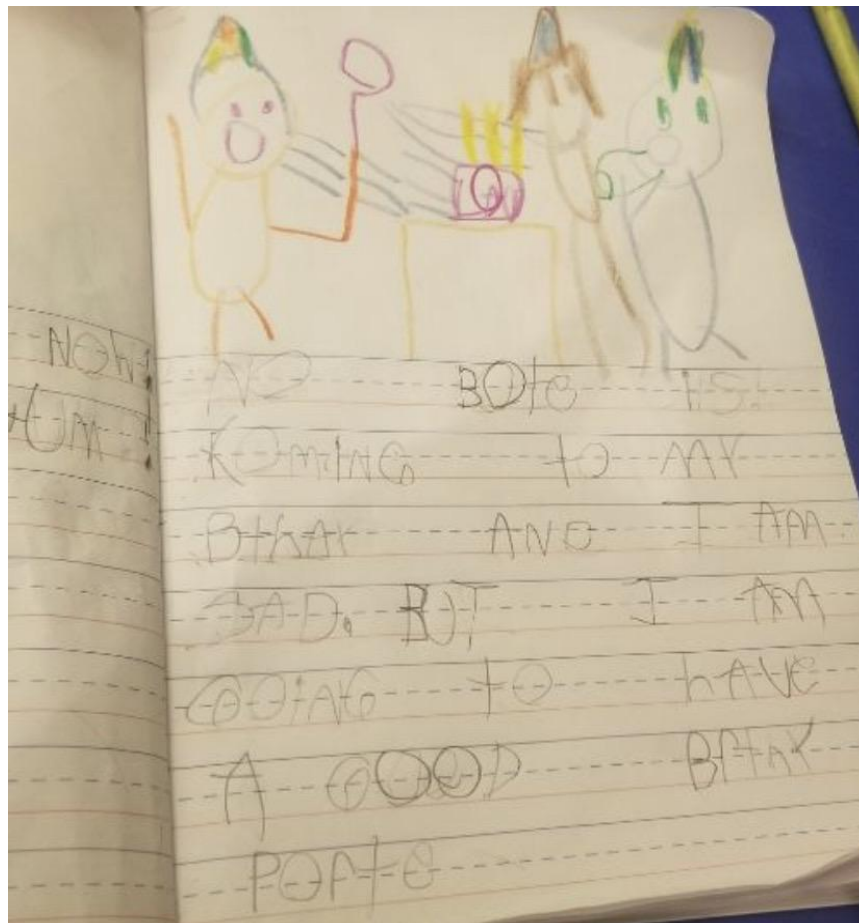 NOW!
UM!
NO BOTE IS!
KOMING TO MY
BthAY AND I AM
SAD. BUT I AM
GOING tO hAVE
A GOOD BFtAY
POFte